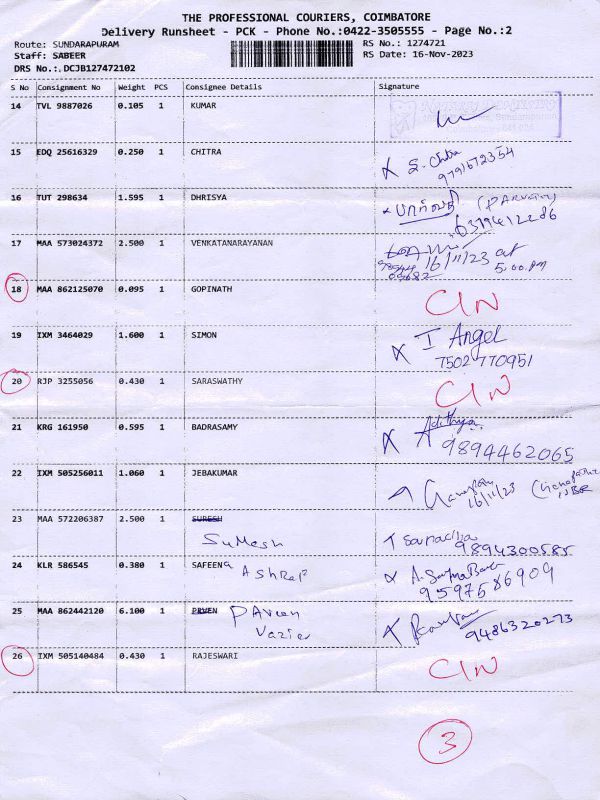 THE PROFESSIONAL COURIERS, COIMBATORE
Delivery Runsheet - PCK - Phone No.:0422-3505555 - Page No.:2
Route: SUNDARAPURAM
RS No.: 1274721
Staff: SABEER
RS Date: 16-Nov-2023
DRS No.:.DCJB127472102
S No Consignment No Weight PCS Consignee Details Signature
14 TVL 9887026 0.105 1 KUMAR
15 EDQ 25616329 0.250 1 CHITRA
S. Chitra
9791672354
16 TUT 298634 1.595 1 DHRISYA
பார்வதி (PARVATHY)
6379412286
17 MAA 573024372 2.500 1 VENKATANARAYANAN
16/11/23 at
5.00 pm
18 MAA 862125070 0.095 1 GOPINATH
CIN
19 IXM 3464029 1.600 1 SIMON
I Angel
7502770951
20 RJP 3255056 0.430 1 SARASWATHY
CIN
21 KRG 161950 0.595 1 BADRASAMY
Adithya
9894462065
22 IXM 505256011 1.060 1 JEBAKUMAR
16/11/23
23 MAA 572206387 2.500 1 SURESH
SuMesh
9894300585
24 KLR 586545 0.380 1 SAFEENA
AShRaf
9597586909
25 MAA 862442120 6.100 1 PRVEN PAveen
Vazier
9486320273
26 IXM 505140484 0.430 1 RAJESWARI
CIN
3